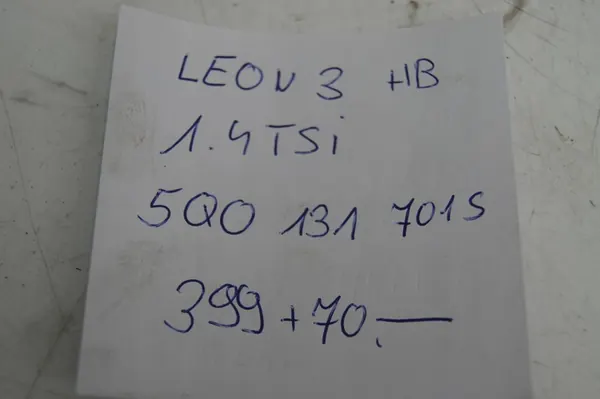 LEON 3 HB
1.4 TSi
5Q0 131 701S
399 + 70.—